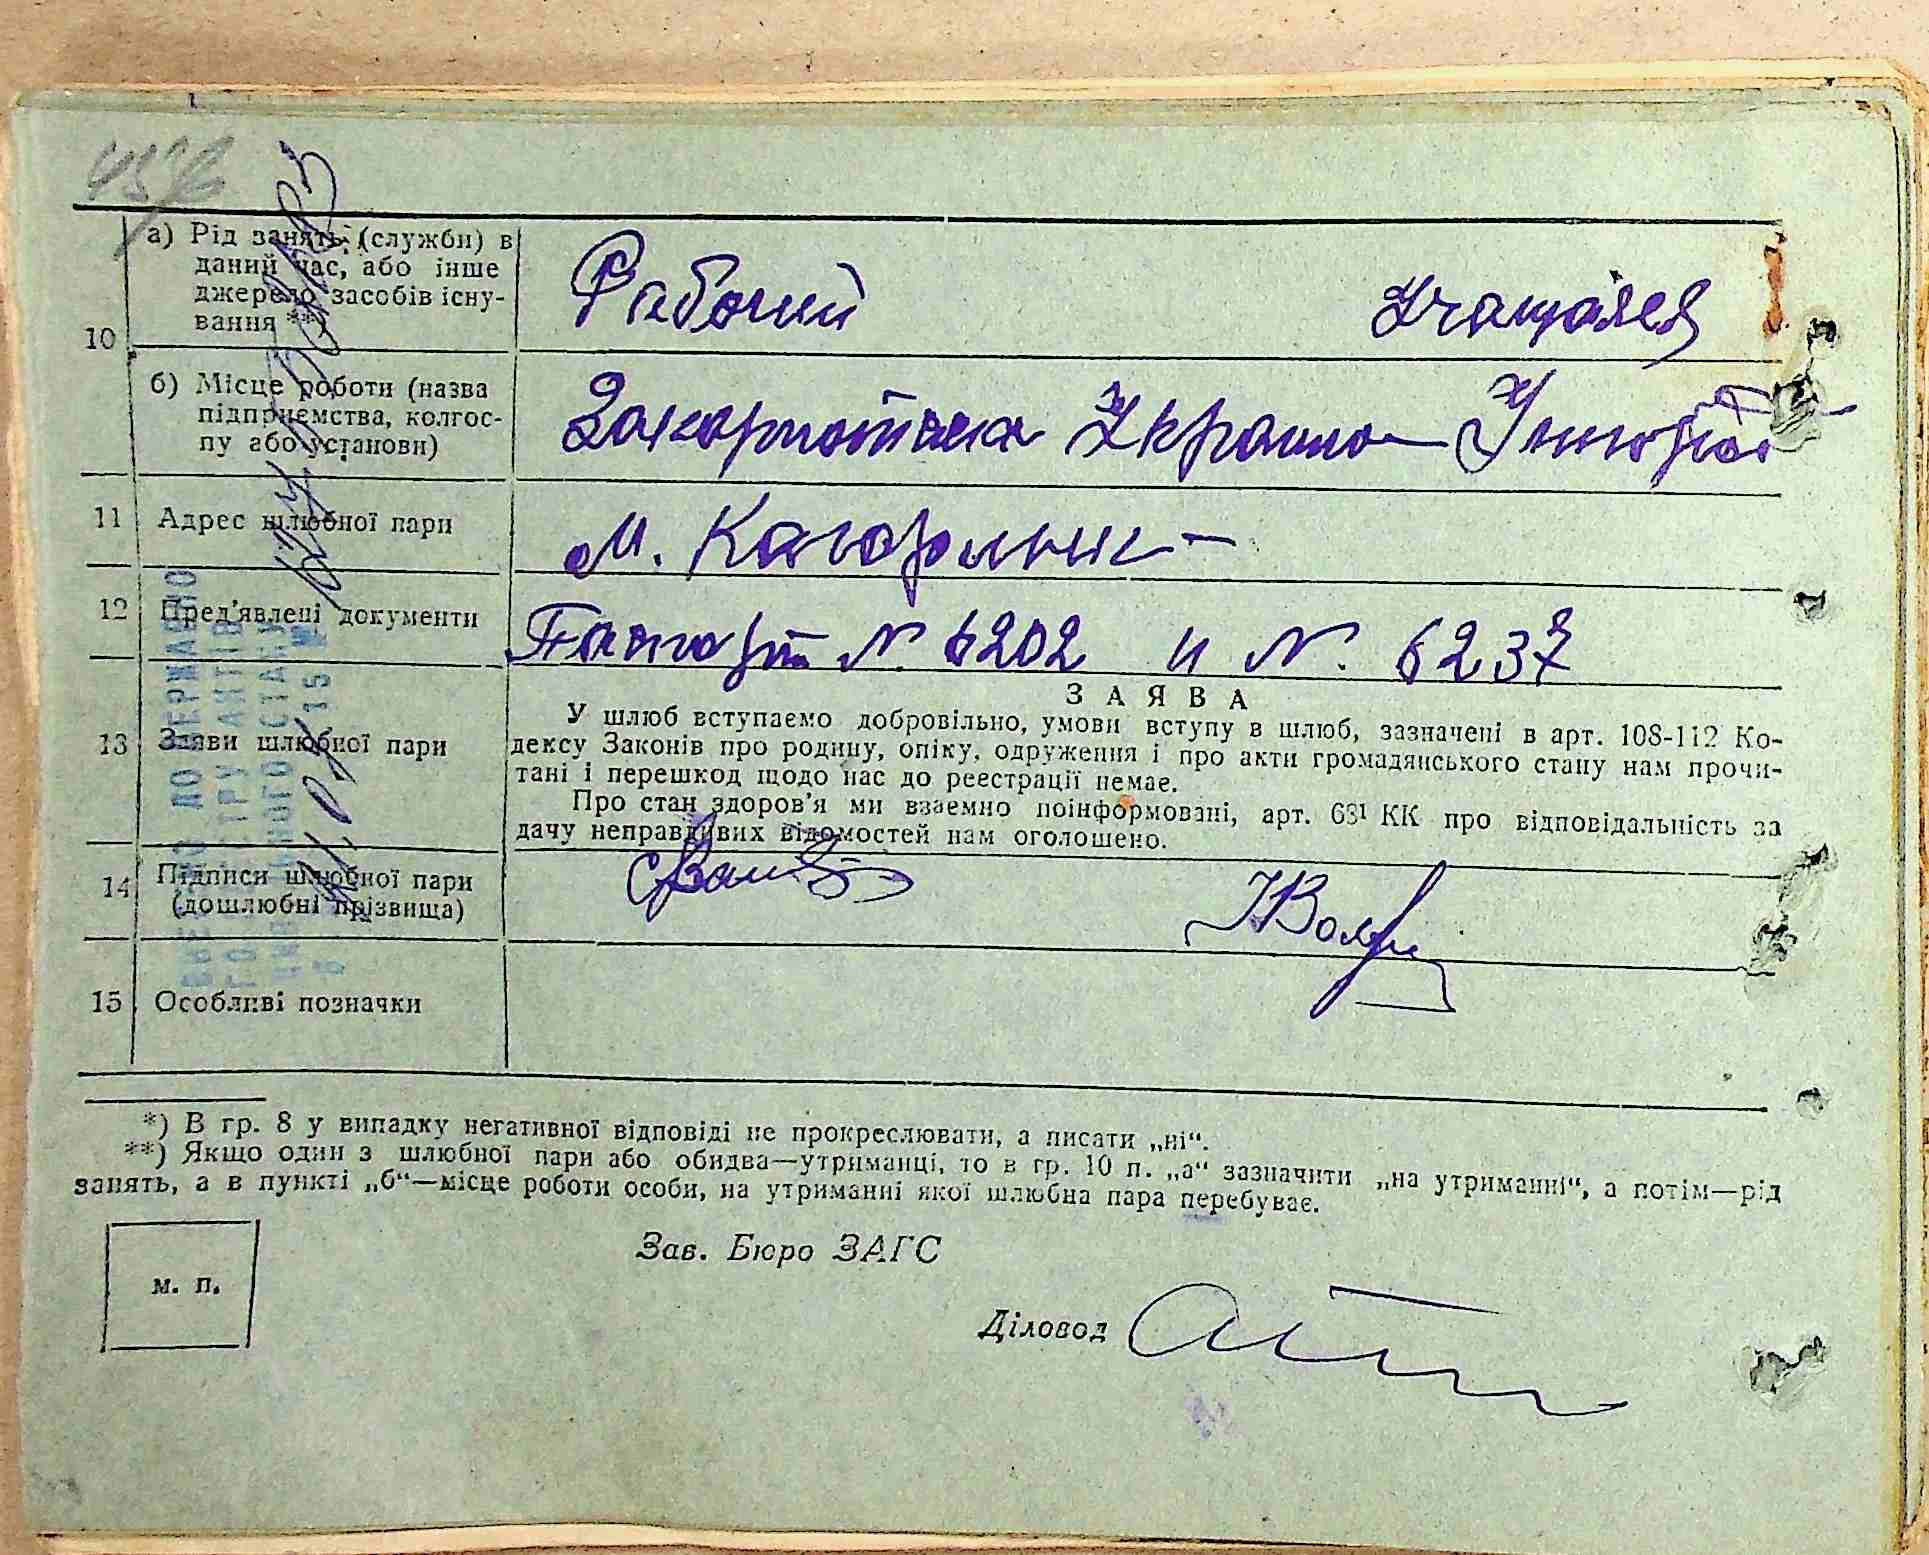 10
а) Рід занять (служби) в
даний час, або інше
джерело засобів існу-
вання **)
Рабочий
Учащаяся
б) Місце роботи (назва
підприємства, колгос-
пу або установи)
Украина
11
Адрес шлюбної пари
м. Кагарлик
12
Пред'явлені документи
Паспорт № 6202 и №. 6237
13
Заяви шлюбної пари
ЗАЯВА
У шлюб вступаємо добровільно, умови вступу в шлюб, зазначені в арт. 108-112 Ко-
дексу Законів про родину, опіку, одруження і про акти громадянського стану нам прочи-
тані і перешкод щодо нас до реєстрації немає.
Про стан здоров'я ми взаємно поінформовані, арт. 68¹ КК про відповідальність за
дачу неправдивих відомостей нам оголошено.
14
Підписи шлюбної пари
(дошлюбні прізвища)
15
Особливі позначки
*) В гр. 8 у випадку негативної відповіді не прокреслювати, а писати „ні“.
**) Якщо один з шлюбної пари або обидва—утриманці, то в гр. 10 п. „а“ зазначити „на утриманні“, а потім—рід
занять, а в пункті „б“—місце роботи особи, на утриманні якої шлюбна пара перебуває.
Зав. Бюро ЗАГС
м. п.
Діловод